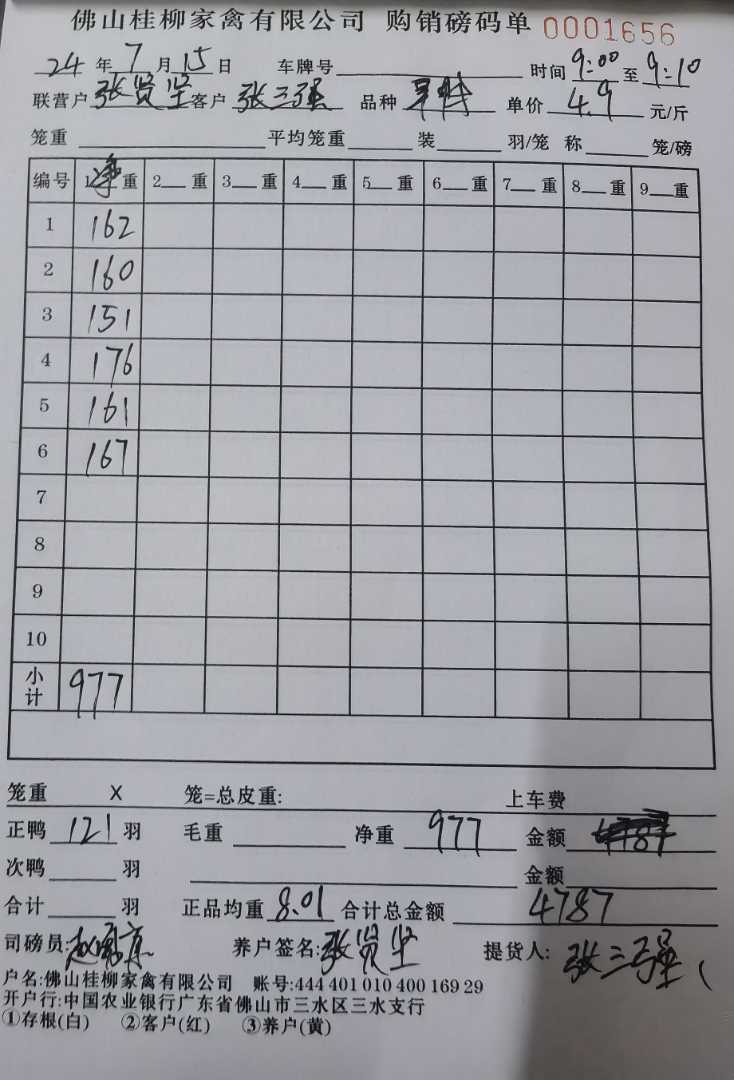 佛山桂柳家禽有限公司 购销磅码单 0001656
24 年 7 月 15 日 车牌号 时间 9:00 至 9:10
联营户 张贤坚 客户 张三强 品种 单价 4.9 元/斤
笼重 平均笼重 装 羽/笼 称 笼/磅
编号 1净重 2 重 3 重 4 重 5 重 6 重 7 重 8 重 9 重
1 162
2 160
3 151
4 176
5 161
6 167
7
8
9
10
小计 977
笼重 X 笼=总皮重: 上车费
正鸭 121 羽 毛重 净重 977 金额
次鸭 羽 金额
合计 羽 正品均重 8.01 合计总金额 4787
司磅员: 养户签名: 张贤坚 提货人: 张三强
户名:佛山桂柳家禽有限公司 账号:444 401 010 400 169 29
开户行:中国农业银行广东省佛山市三水区三水支行
①存根(白) ②客户(红) ③养户(黄)